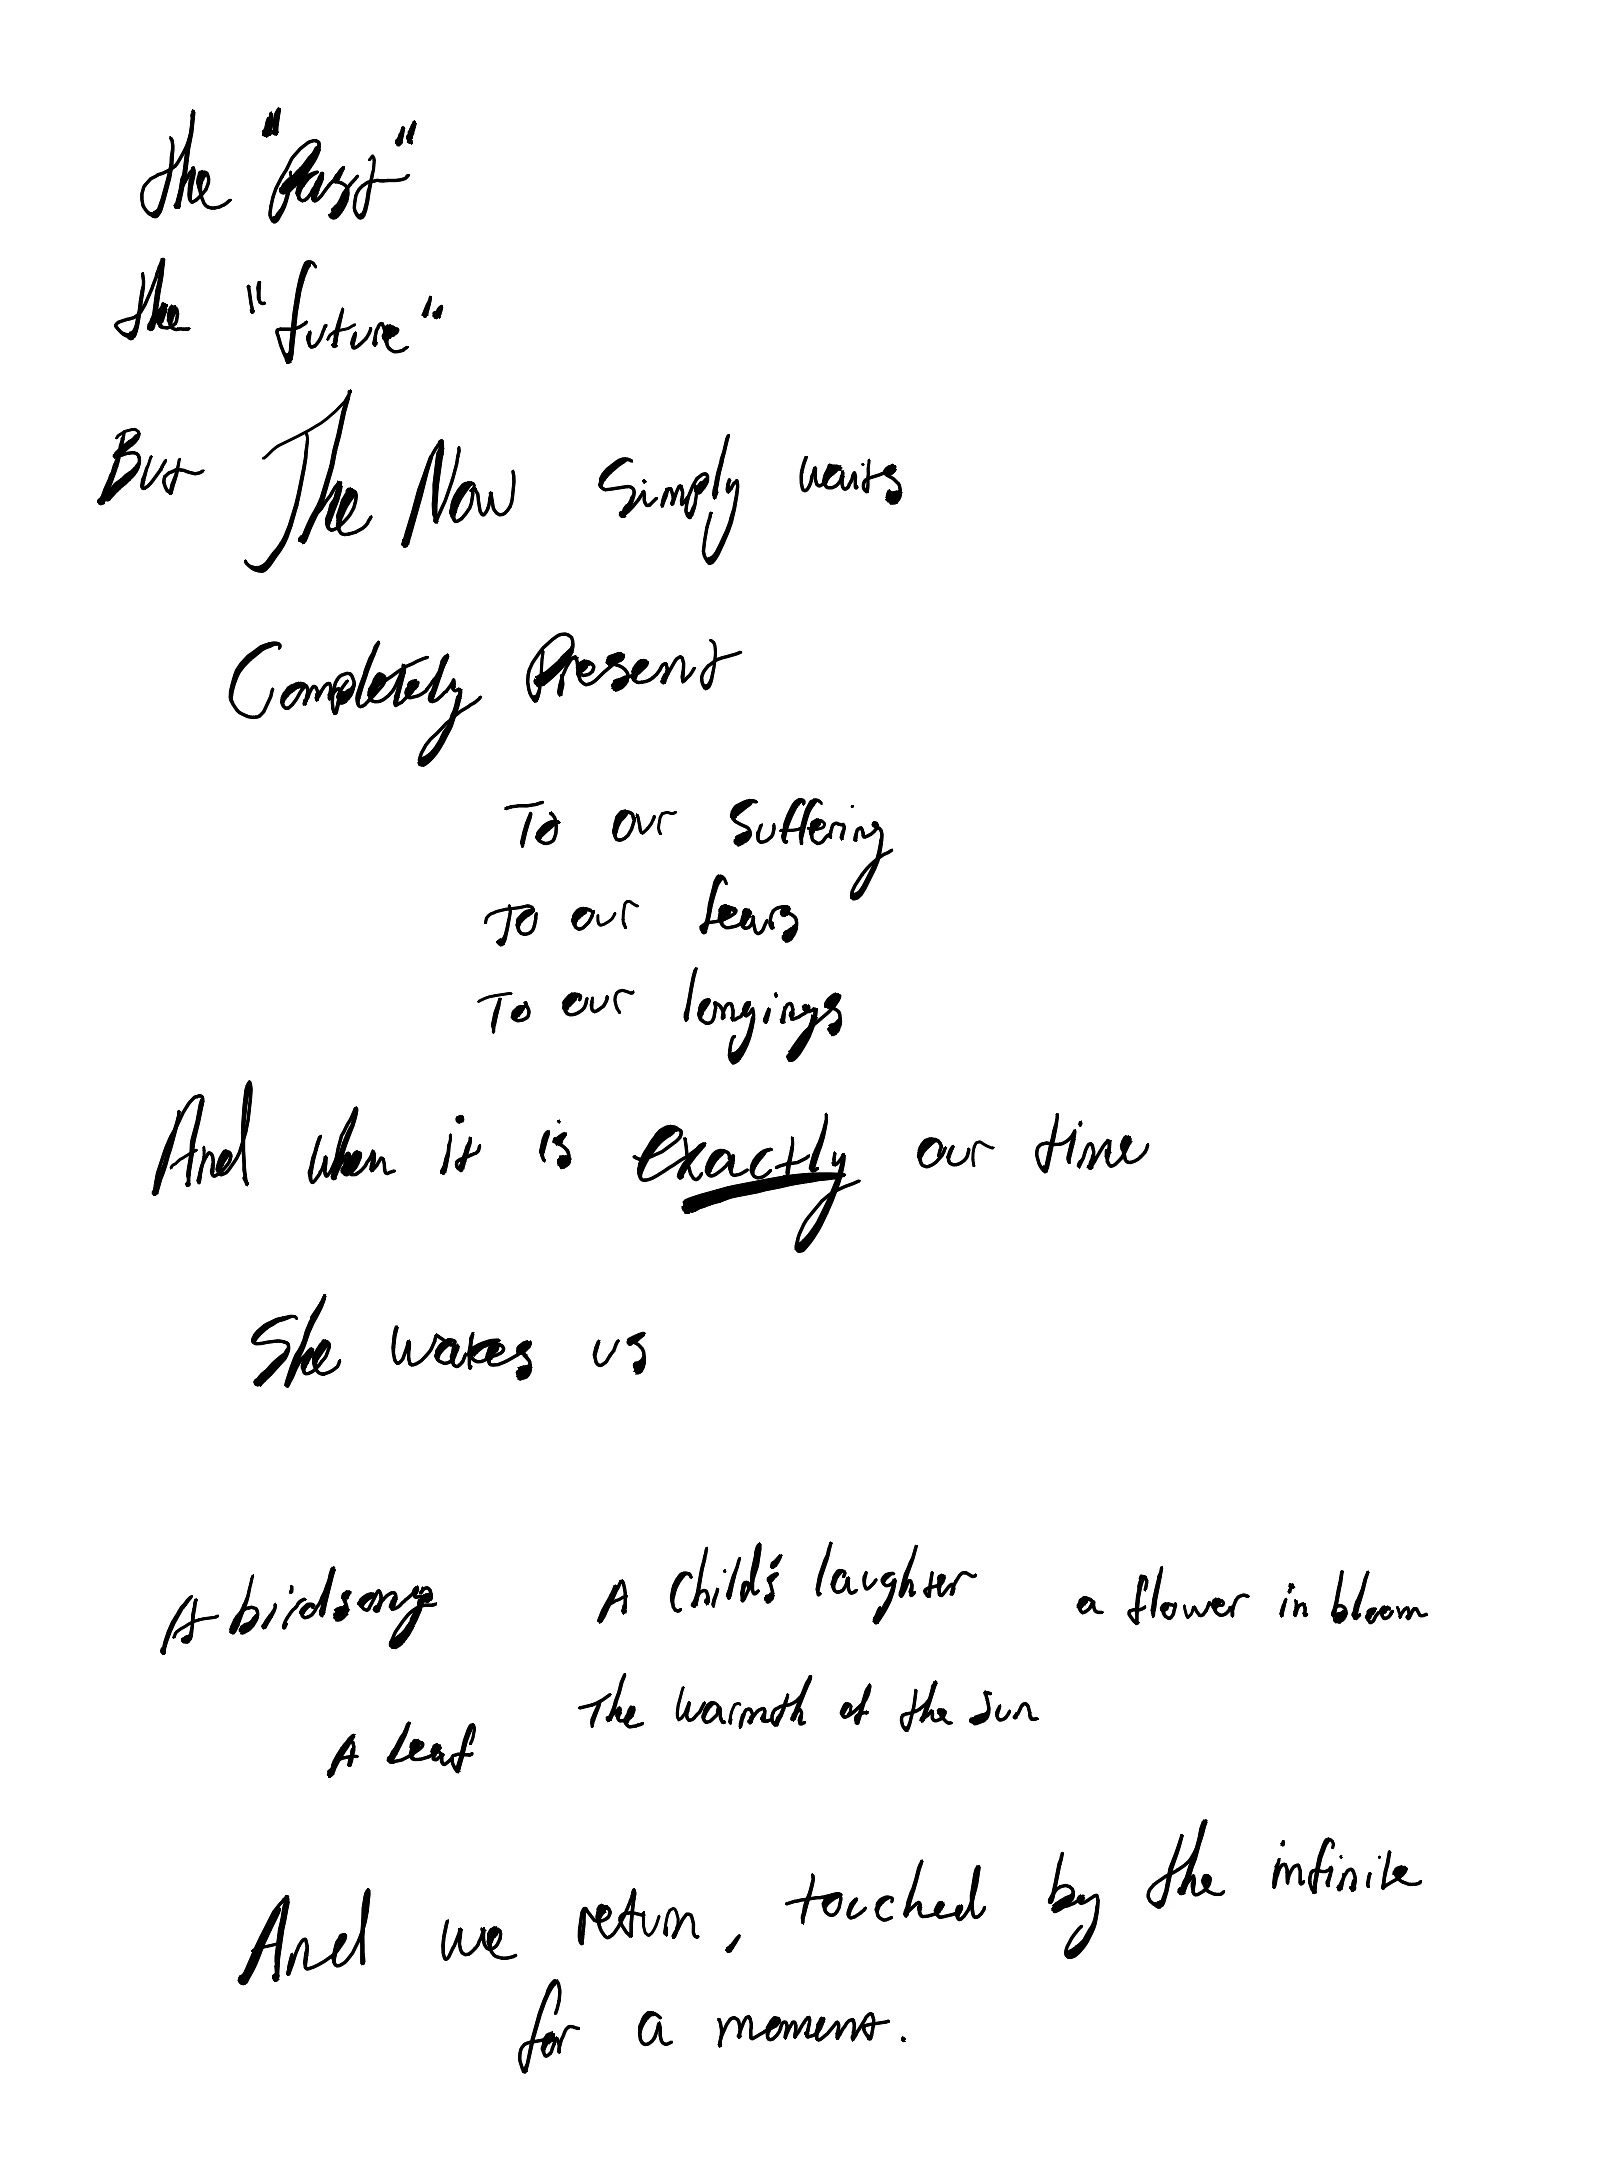 the "Past"
the "future"
But The Now simply waits
Completely Present
To our suffering
To our fears
To our longings
And when it is exactly our time
She wakes us
A birdsong A child's laughter a flower in bloom
The warmth of the sun
A leaf
And we return, touched by the infinite
for a moment.